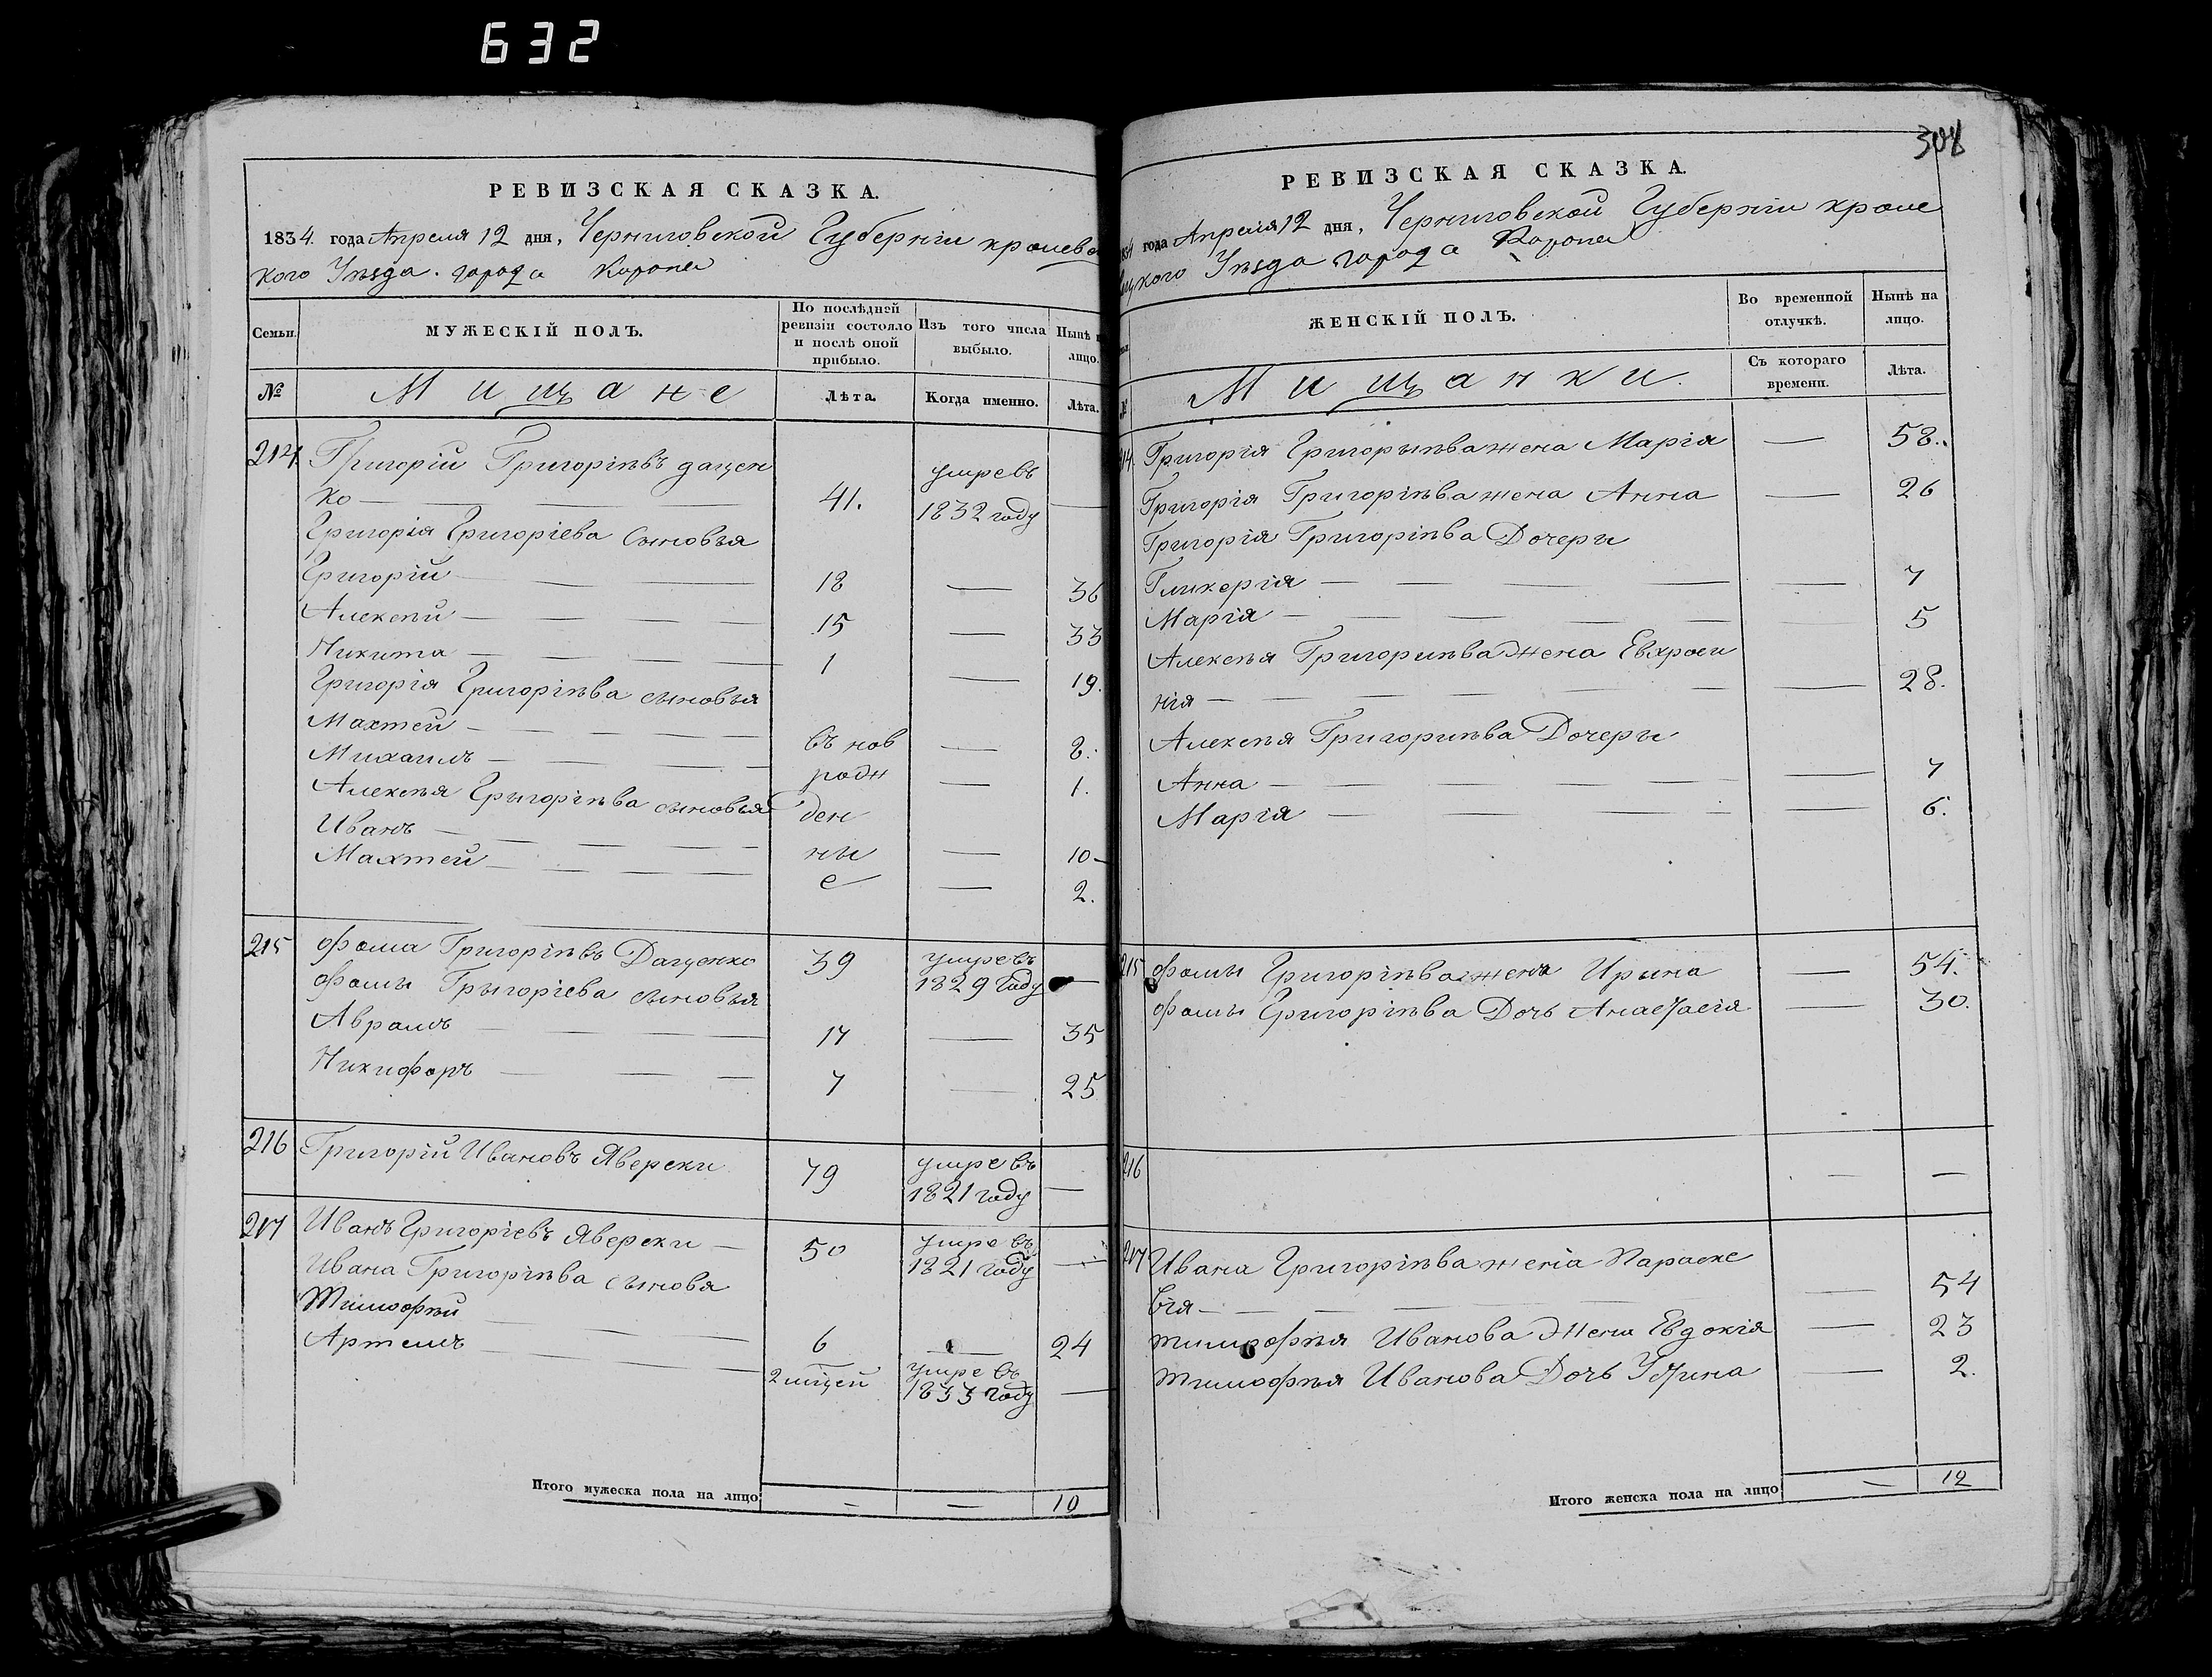 632
РЕВИЗСКАЯ СКАЗКА.
1834. года Апреля 12 дня, Черниговской Губерніи кролеве
кого Уѣзда. города Коропа
Семьи.
МУЖЕСКІЙ ПОЛЪ.
По послѣдней ревизіи состояло и послѣ оной прибыло.
Изъ того числа выбыло.
Нынѣ н лицо.
№
Мищане
Лѣта.
Когда именно.
Лѣта.
214. Григорій Григоріѣвъ дацен
ко — 41. умре въ 1832 году —
Григорія Григоріева Сыновья
Григорій — 18 — 36
Алексѣй — 15 — 33
Никита — 1 — 19.
Григорія Григоріѣва сыновья
Махтей — въ нов — 8.
Михаилъ — радн — 1.
Алексѣя Грыгоріѣва сыновья ден
Иванъ — ны — 10
Махтей — е — 2.
215 Фома Григоріѣвъ Даценко 39 умре въ 1829 Году —
Фомы Грыгоріева сыновья
Аврамъ — 17 — 35
Никифоръ — 7 — 25
216 Григорій Ивановъ Яверски 79 умре въ 1821 году —
217 Иванъ Григоріевъ Яверски — 50 умре въ 1821 году —
Ивана Григоріѣва сыновя
Тимофѣй — 6 — 24
Артемъ — 2 умре въ 1833 году —
Итого мужеска пола на лицо — — 10
308
РЕВИЗСКАЯ СКАЗКА.
834 года Апреля 12 дня, Черниговской Губерніи кроле
вецкого Уѣзда города Коропа
ЖЕНСКІЙ ПОЛЪ.
Во временной отлучкѣ.
Нынѣ на лицо.
№
Мищанки.
Съ котораго времени.
Лѣта.
214. Григорія Григорыѣва жена Марія — 58.
Григорія Григоріѣва жена Анна — 26
Григорія Григоріѣва Дочери
Гликерія — — 7
Марія — — 5
Алексѣя Григориѣва Жена Евхроси
нія — — 28.
Алексѣя Григориѣва Дочеры
Анна — — 7
Марія — — 6.
215 Фомы Григоріѣва жена Ирина — 54.
Фомы Григоріѣва Дочь Анастасія — 30.
216 — —
217 Ивана Григоріѣва жена Параске
вія — — 54
Тимофѣя Иванова Жена Евдокія — 23
Тимофѣя Иванова Дочь — 2.
Итого женска пола на лицо — 12